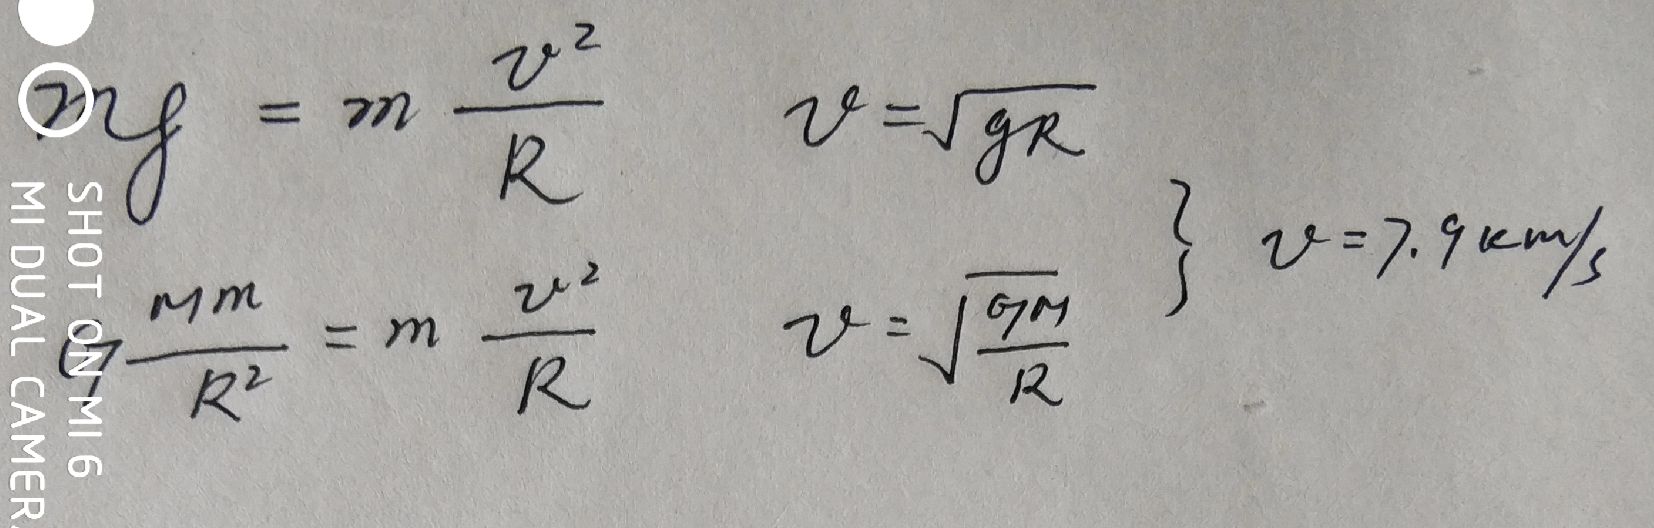 mg = m v²/R    v = √gR
G Mm/R² = m v²/R    v = √(GM/R)
} v = 7.9 km/s
SHOT ON MI 6
MI DUAL CAMERA